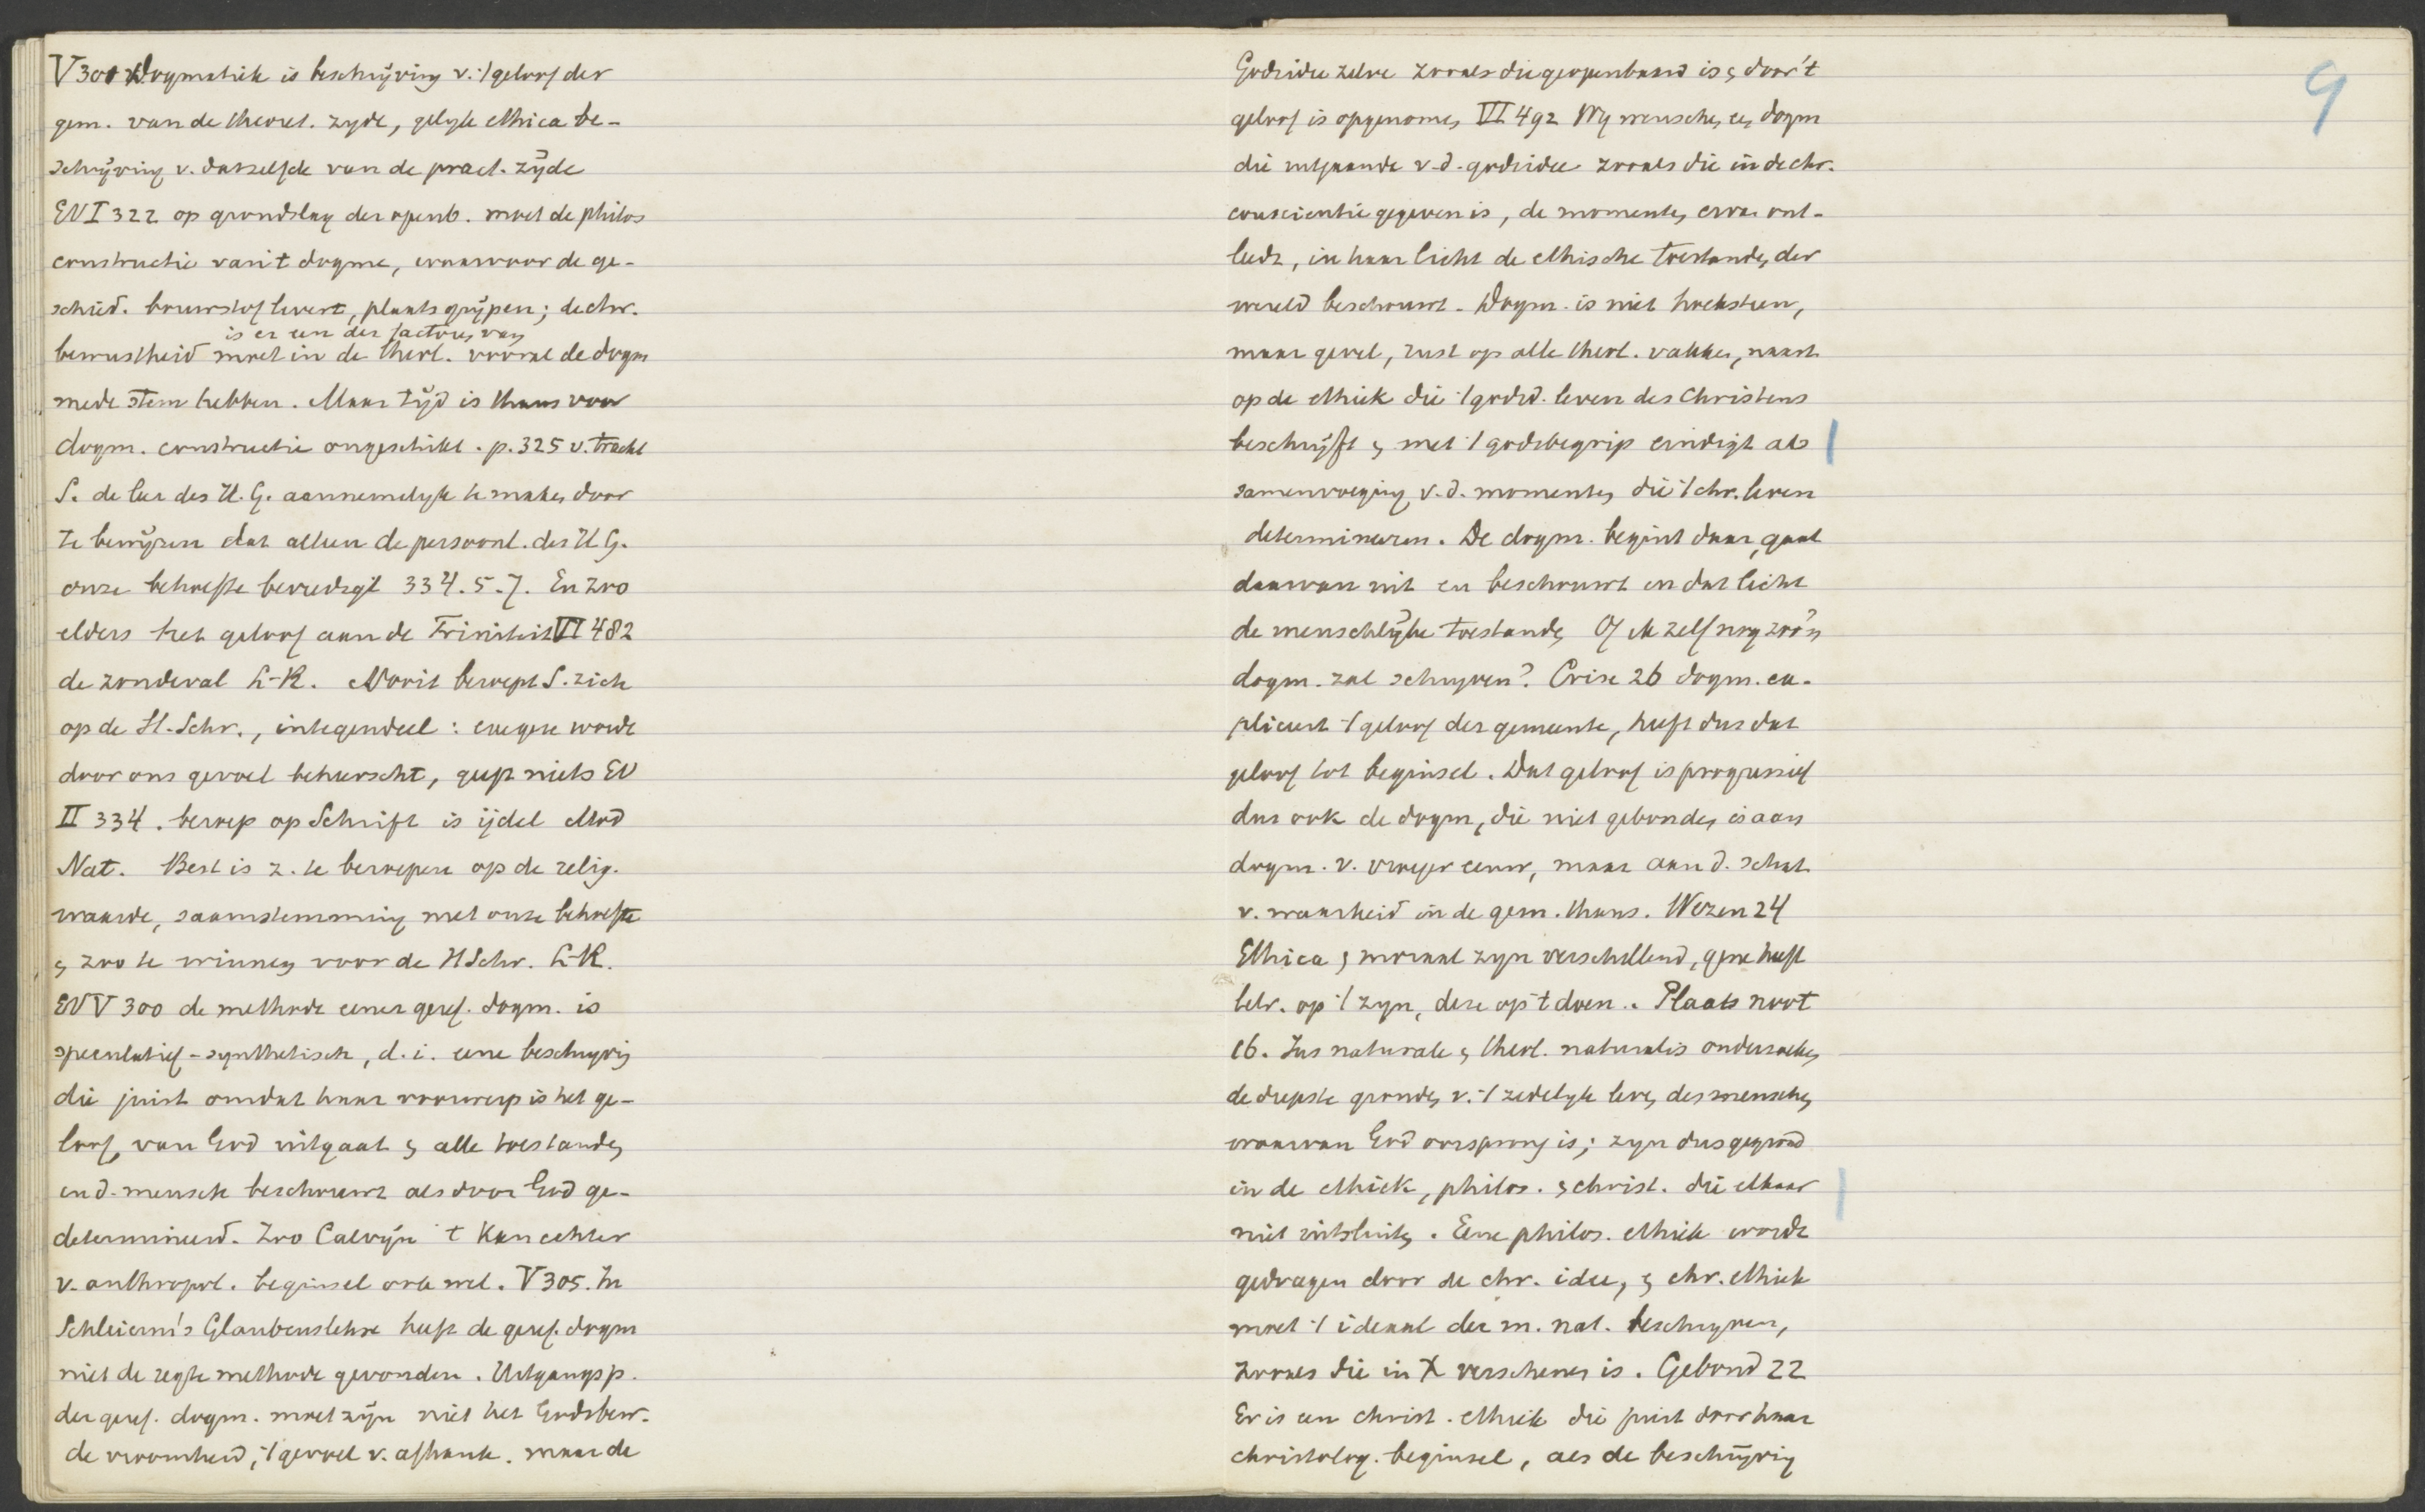 V 300 Dogmatiek is beschrijving v. 't geloof der
gem. van de theoret. zyde, gelyk ethica be-
schrijving v. datzelfde van de pract. zijde
EV I 322 op grondslag der openb. moet de philos
constructie van 't dogme, waarvoor de ge-
schied. bouwstof levert, plaats grijpen; de chr.
is er een der factoren van
bewustheid moet in de theol. vooral de dogm
mede stem hebben. Maar tijd is thans voor
dogm. constructie ongeschikt. p. 325 v. tracht
S. de leer des H. G. aannemelyk te maken door
te bewijzen dat alleen de persoonl. des H G.
onze behoefte bevredigt 334. 5. 7. En zoo
elders het geloof aan de Triniteit VI 482
de zondeval L-K. Nooit beroept S. zich
op de H. Schr., integendeel: exegese wordt
door ons gevoel beheerscht, geeft niets EV
II 334. beroep op Schrift is ijdel Mod
Nat. Best is z. te beroepen op de relig.
waarde, saamstemming met onze behoefte
en zoo te winnen voor de HSchr. L-K.
EV V 300 de methode eener geref. dogm. is
speculatief-synthetisch, d. i. eene beschryving
die juist omdat haar voorwerp is het ge-
loof, van God uitgaat en alle toestanden
in d. mensch beschouwt als door God ge-
determineerd. Zoo Calvijn 't Kan echter
v. anthropol. beginsel ook wel. V 305. In
Schleierm's Glaubenslehre heeft de geref. dogm
niet de regte methode gevonden. Uitgangsp.
der geref. dogm. moet zijn niet het Godsbew.
de vroomheid, 't gevoel v. afhank. maar de
Godsidee zelve zooals die geopenbaard is en door 't
geloof is opgenomen VI 492 Wy wenschen een dogm
die uitgaande v. d. godsidee zooals die in de chr.
conscientie gegeven is, de momenten ervan ont-
leedt, in haar licht de ethische toestanden der
wereld beschouwt. Dogm. is niet hoeksteen,
maar gevel, rust op alle theol. vakken, naast
op de ethiek die 't godsd. leven des Christens
beschrijft en met 't godsbegrip eindigt als
samenvoeging v. d. momenten die 't chr. leven
determineeren. De dogm. begint daar, gaat
daarvan uit en beschouwt in dat licht
de menschlijke toestanden Of ik zelf nog zoo'n
dogm. zal schryven? Crise 26 dogm. ex-
pliceert 't geloof der gemeente, heeft dus dat
geloof tot beginsel. Dat geloof is progressief
dus ook de dogm, die niet gebonden is aan
dogm. v. vroeger eeuw, maar aan d. schat
v. waarheid in de gem. thans. Wezen 24
Ethica en moraal zyn verschillend, gene heeft
betr. op 't zyn, deze op 't doen. Plaats noot
16. Jus naturale en theol. naturalis onderzoeken
de diepste gronden v. 't zedelyk leven des menschen
waarvan God oorsprong is; zyn dus gegrond
in de ethiek, philos. en christ. die elkaar
niet uitsluiten. Eene philos. ethiek wordt
gedragen door de chr. idee, en chr. ethiek
moet 't ideaal der m. nat. beschryven,
zooals die in X verschenen is. Gebond 22
Er is een christ. ethiek die juist door haar
christolog. beginsel, als de beschrijving
9